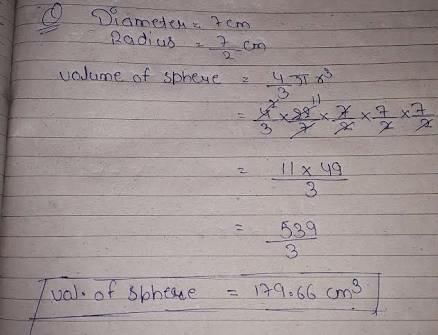 Q Diameter = 7cm
Radius = 7/2 cm
volume of sphere = 4/3 πr³
= 4/3 × 22/7 × 7/2 × 7/2 × 7/2
2 11
= 11 × 49/3
= 539/3
vol. of sphere = 179.66 cm³